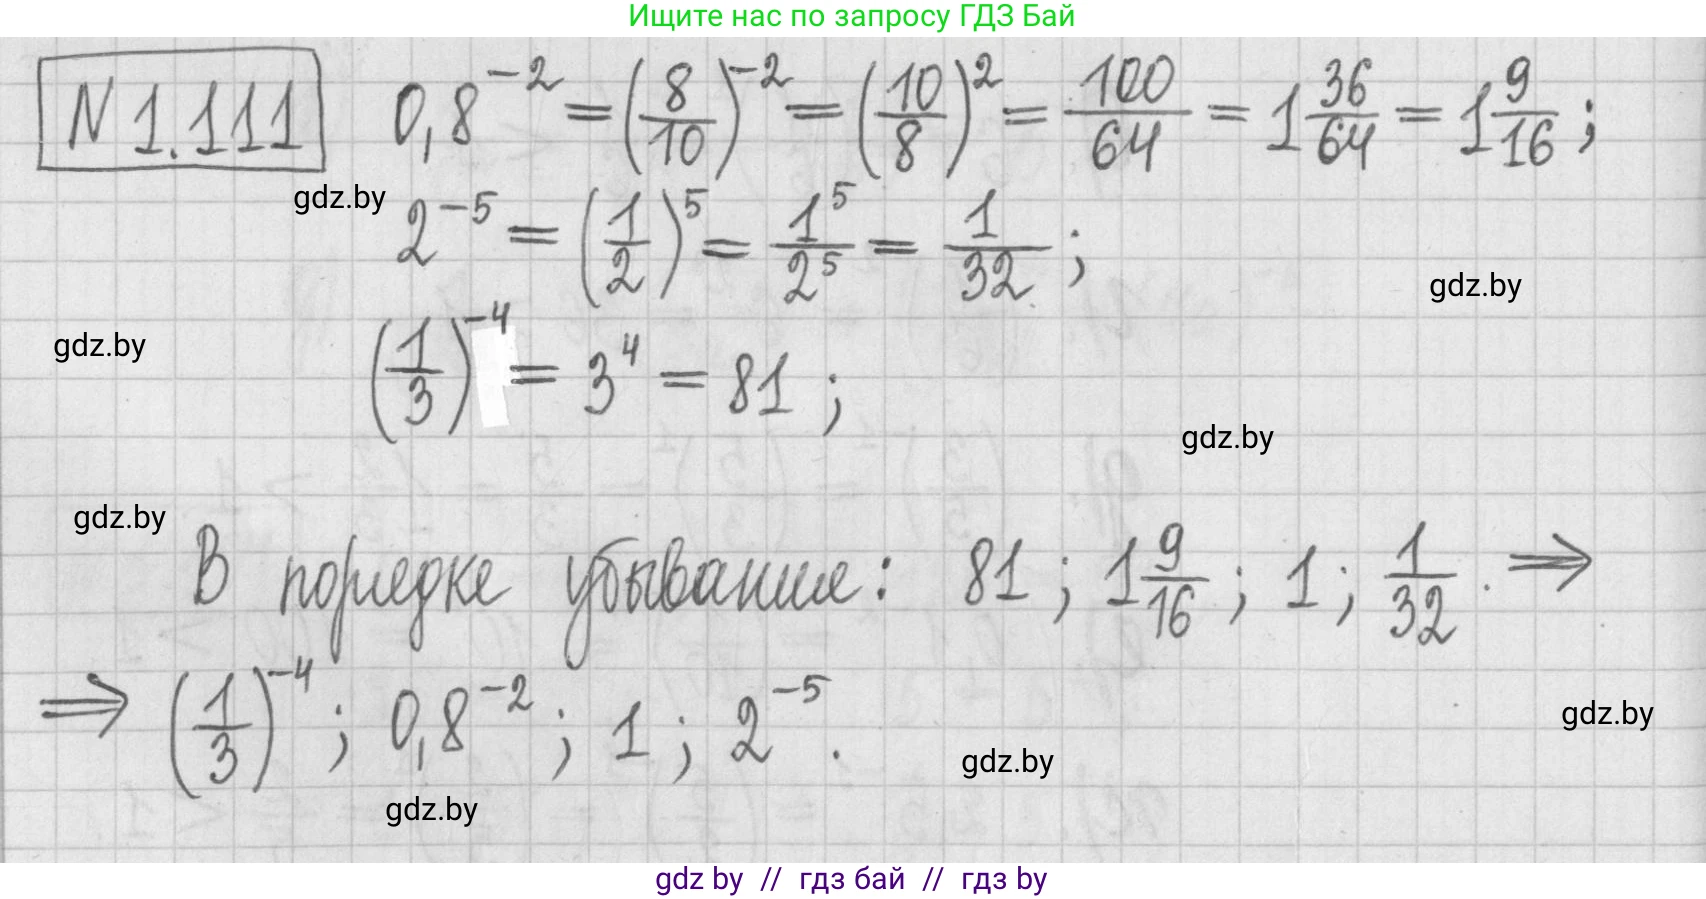 Ищите нас по запросу ГДЗ Бай
N 1.111 0,8^-2 = (8/10)^-2 = (10/8)^2 = 100/64 = 1 36/64 = 1 9/16 ;
gdz.by
2^-5 = (1/2)^5 = 1^5/2^5 = 1/32 ;
gdz.by
gdz.by
(1/3)^-4 = 3^4 = 81 ;
gdz.by
gdz.by
В порядке убывания: 81 ; 1 9/16 ; 1 ; 1/32 . ⇒
⇒ (1/3)^-4 ; 0,8^-2 ; 1 ; 2^-5 .
gdz.by
gdz.by
gdz.by
gdz by // гдз бай // гдз by